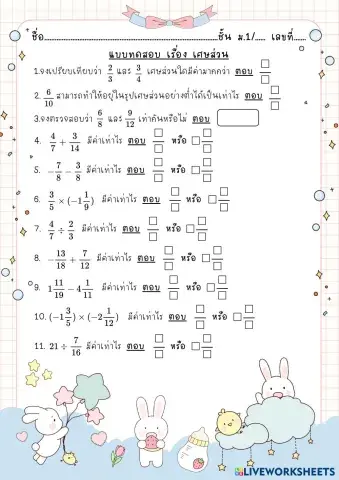 ชื่อ............................................................ชั้น ม.1/...... เลขที่......
แบบทดสอบ เรื่อง เศษส่วน
1.จงเปรียบเทียบว่า 2/3 และ 3/4 เศษส่วนใดมีค่ามากกว่า ตอบ
2. 6/10 สามารถทำให้อยู่ในรูปเศษส่วนอย่างต่ำได้เป็นเท่าไร ตอบ
3.จงตรวจสอบว่า 6/8 และ 9/12 เท่ากันหรือไม่ ตอบ
4. 4/7 + 3/14 มีค่าเท่าไร ตอบ หรือ
5. -7/8 - 3/8 มีค่าเท่าไร ตอบ หรือ
6. 3/5 × (-1 1/9) มีค่าเท่าไร ตอบ หรือ
7. 4/7 ÷ 2/3 มีค่าเท่าไร ตอบ หรือ
8. -13/18 + 7/12 มีค่าเท่าไร ตอบ หรือ
9. 1 11/19 - 4 1/11 มีค่าเท่าไร ตอบ หรือ
10. (-3/5) × (-2 1/12) มีค่าเท่าไร ตอบ หรือ
11. 21 ÷ 7/16 มีค่าเท่าไร ตอบ หรือ
LIVEWORKSHEETS